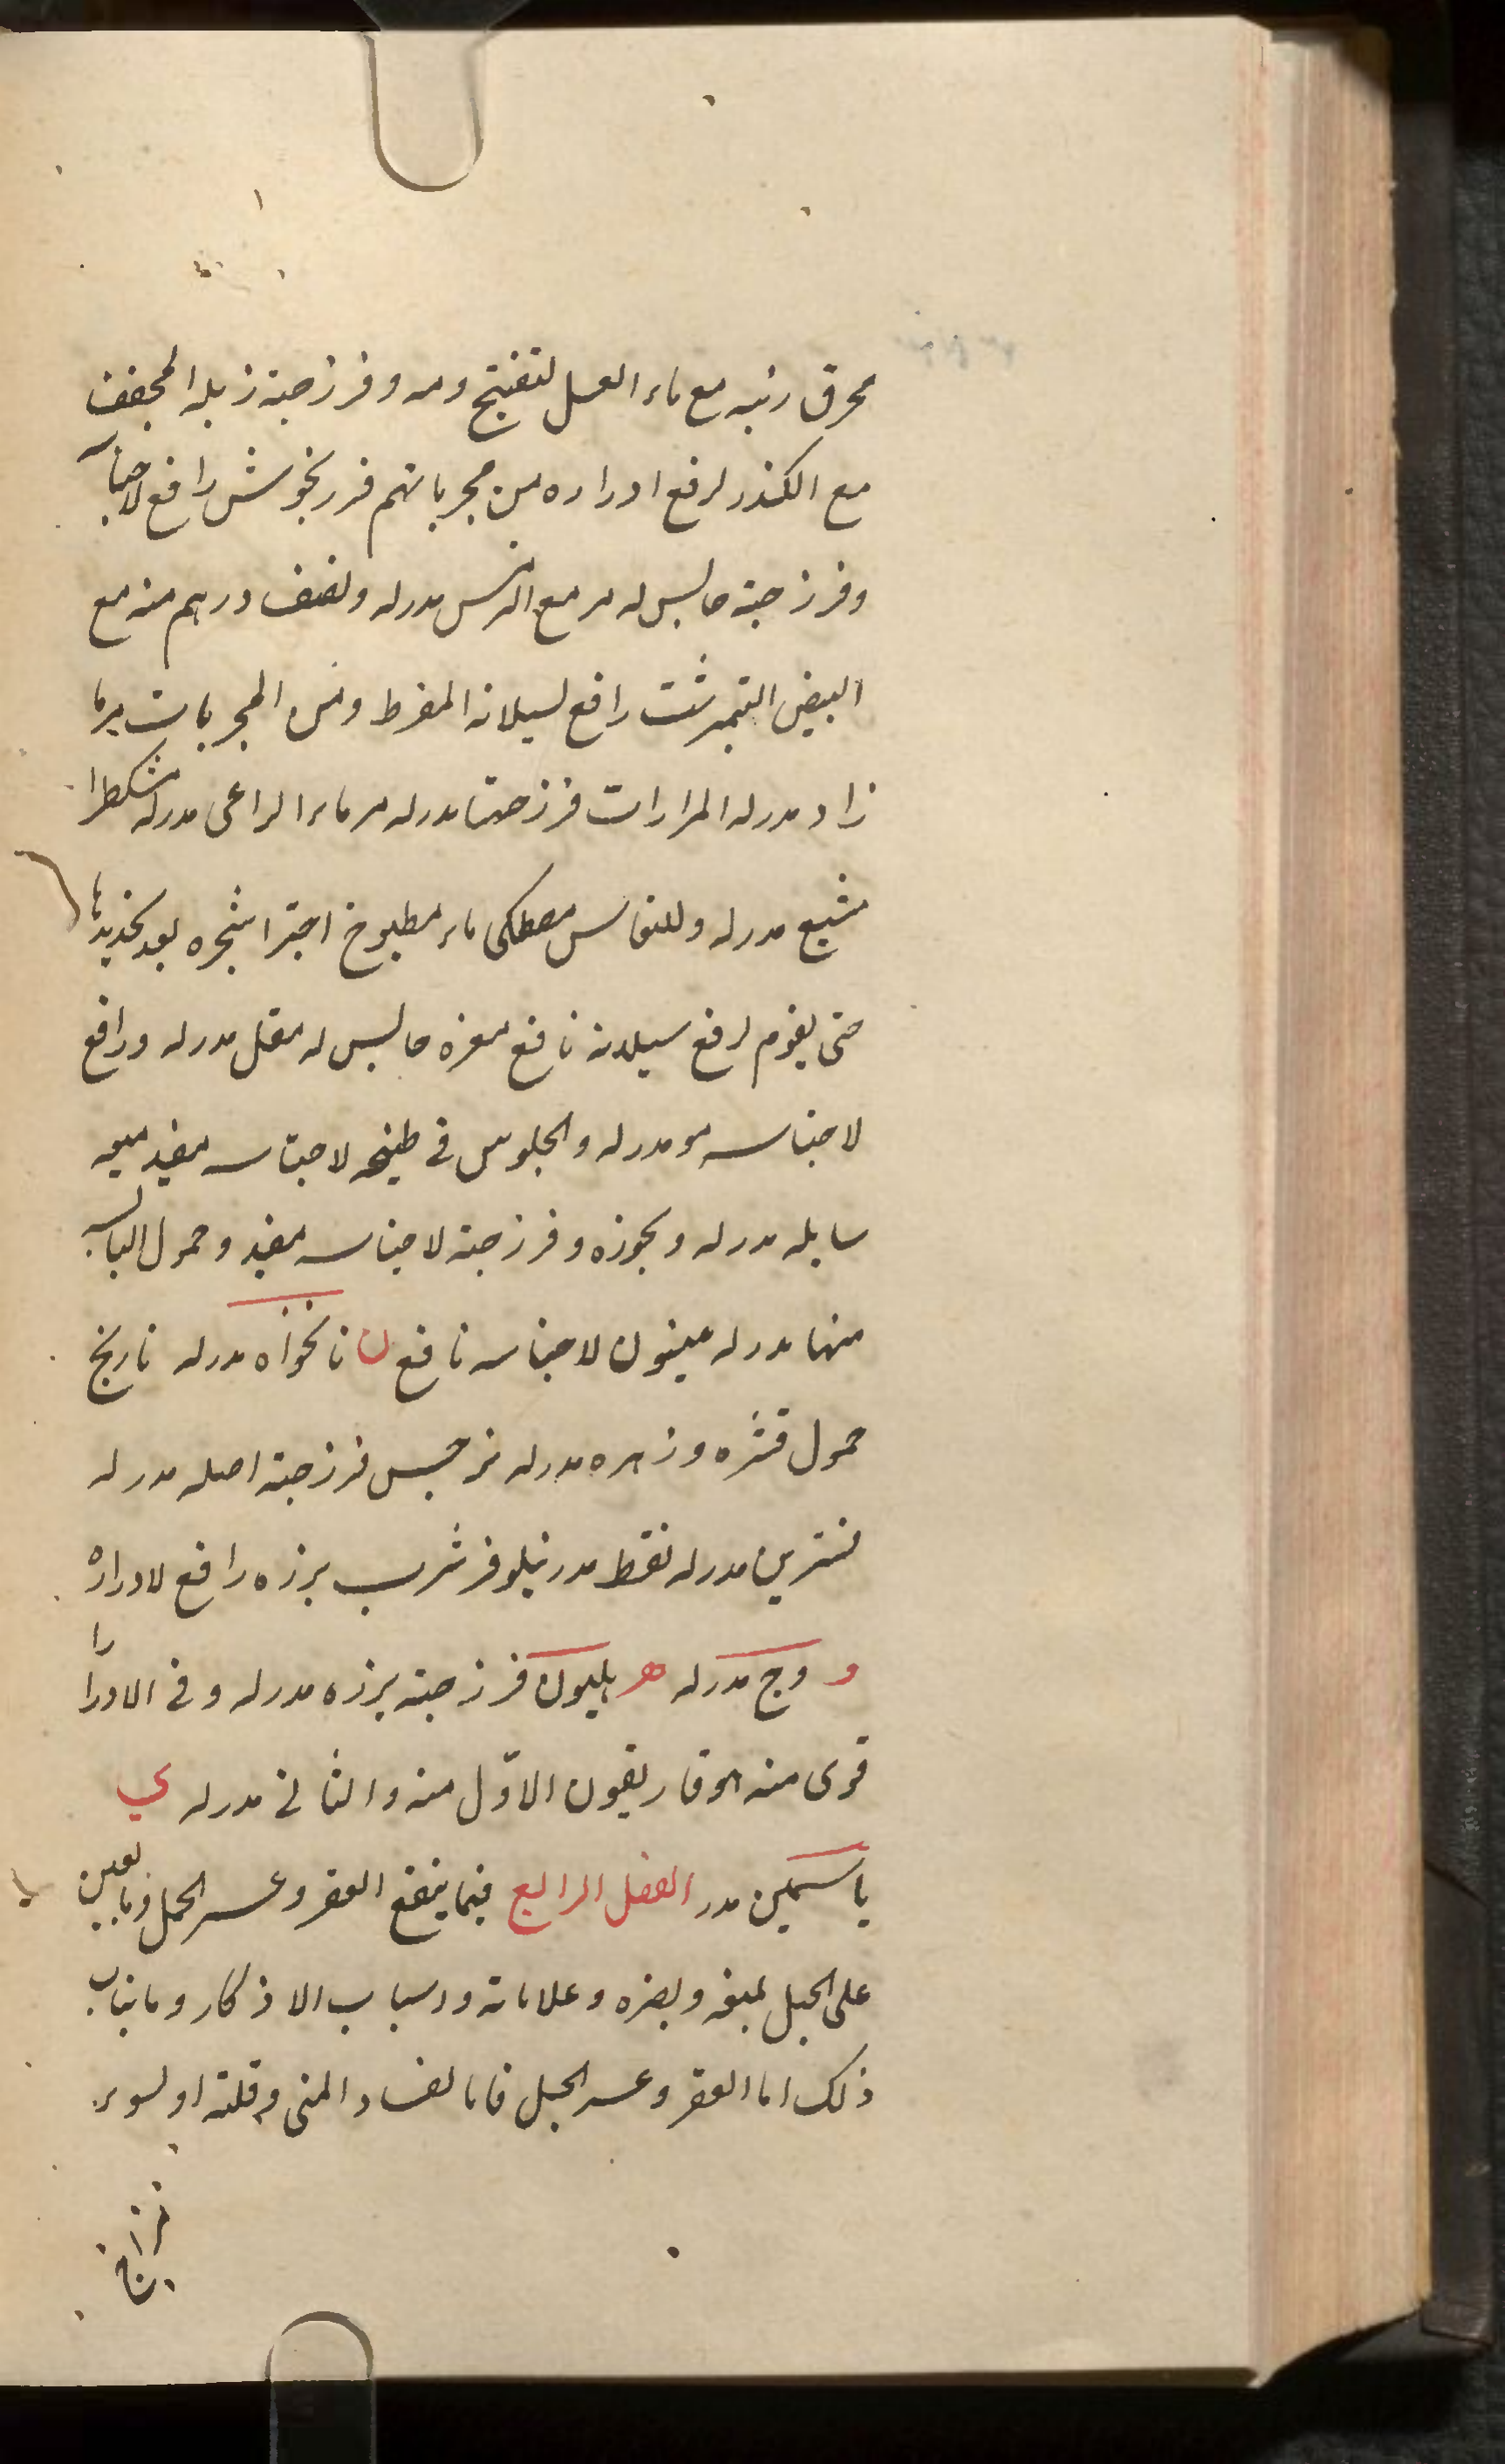 محرق رئبه مع ماء العسل لتفتيح ومه وفرزجته زبله المجفف
مع الكندر لرفع ادراره من مجرباتهم فرريخوشش رافع لاحتبا
وفرزجته حابس له مر مع الترمس مدرله ونصف درهم منه مع
البيض النيمبرشت رافع لسيلانه المفرط ومن المجربات مرما
زاد مدرله المرارات فرزجتها مدرله مرماء الراعى مدرله مشكطرا
مشيع مدرله وللنفاس مصطكى ماء مطبوخ اجزا شجره بعد تجديدها
حتى يقوم لرفع سيلانه نافع مغره حابس له مقل مدرله ورافع
لاحتباسه مو مدرله والجلوس فى طبيخه لاحتباسه مفيد ميعه
سايله مدرله وبخوره وفرزجته لاحتباسه مفيد وحمول اليابسه
منها مدرله ميفون لاحتباسه نافع ن نانخواه مدرله نارنج
حمول قشره وزهره مدرله نرجس فرزجته اصله مدرله
نسترين مدرله نفط مدر نيلوفر شرب بزره رافع لادراره
و وج مدرله ه هليون فرزجته بزره مدرله وفى الادرا را
قوى منه هوفاريقون الاوّل منه والثانى مدرله ي
ياسمين مدر الفصل الرابع فيما ينفع العقر وعسر الحمل وما يعين
على الحبل لمنعه وبصره وعلاماته واسباب الاذكار وما يناسب
ذلك اما العقر وعسر الحبل فاما لفساد المنى وقلته او لسوء
مزاج